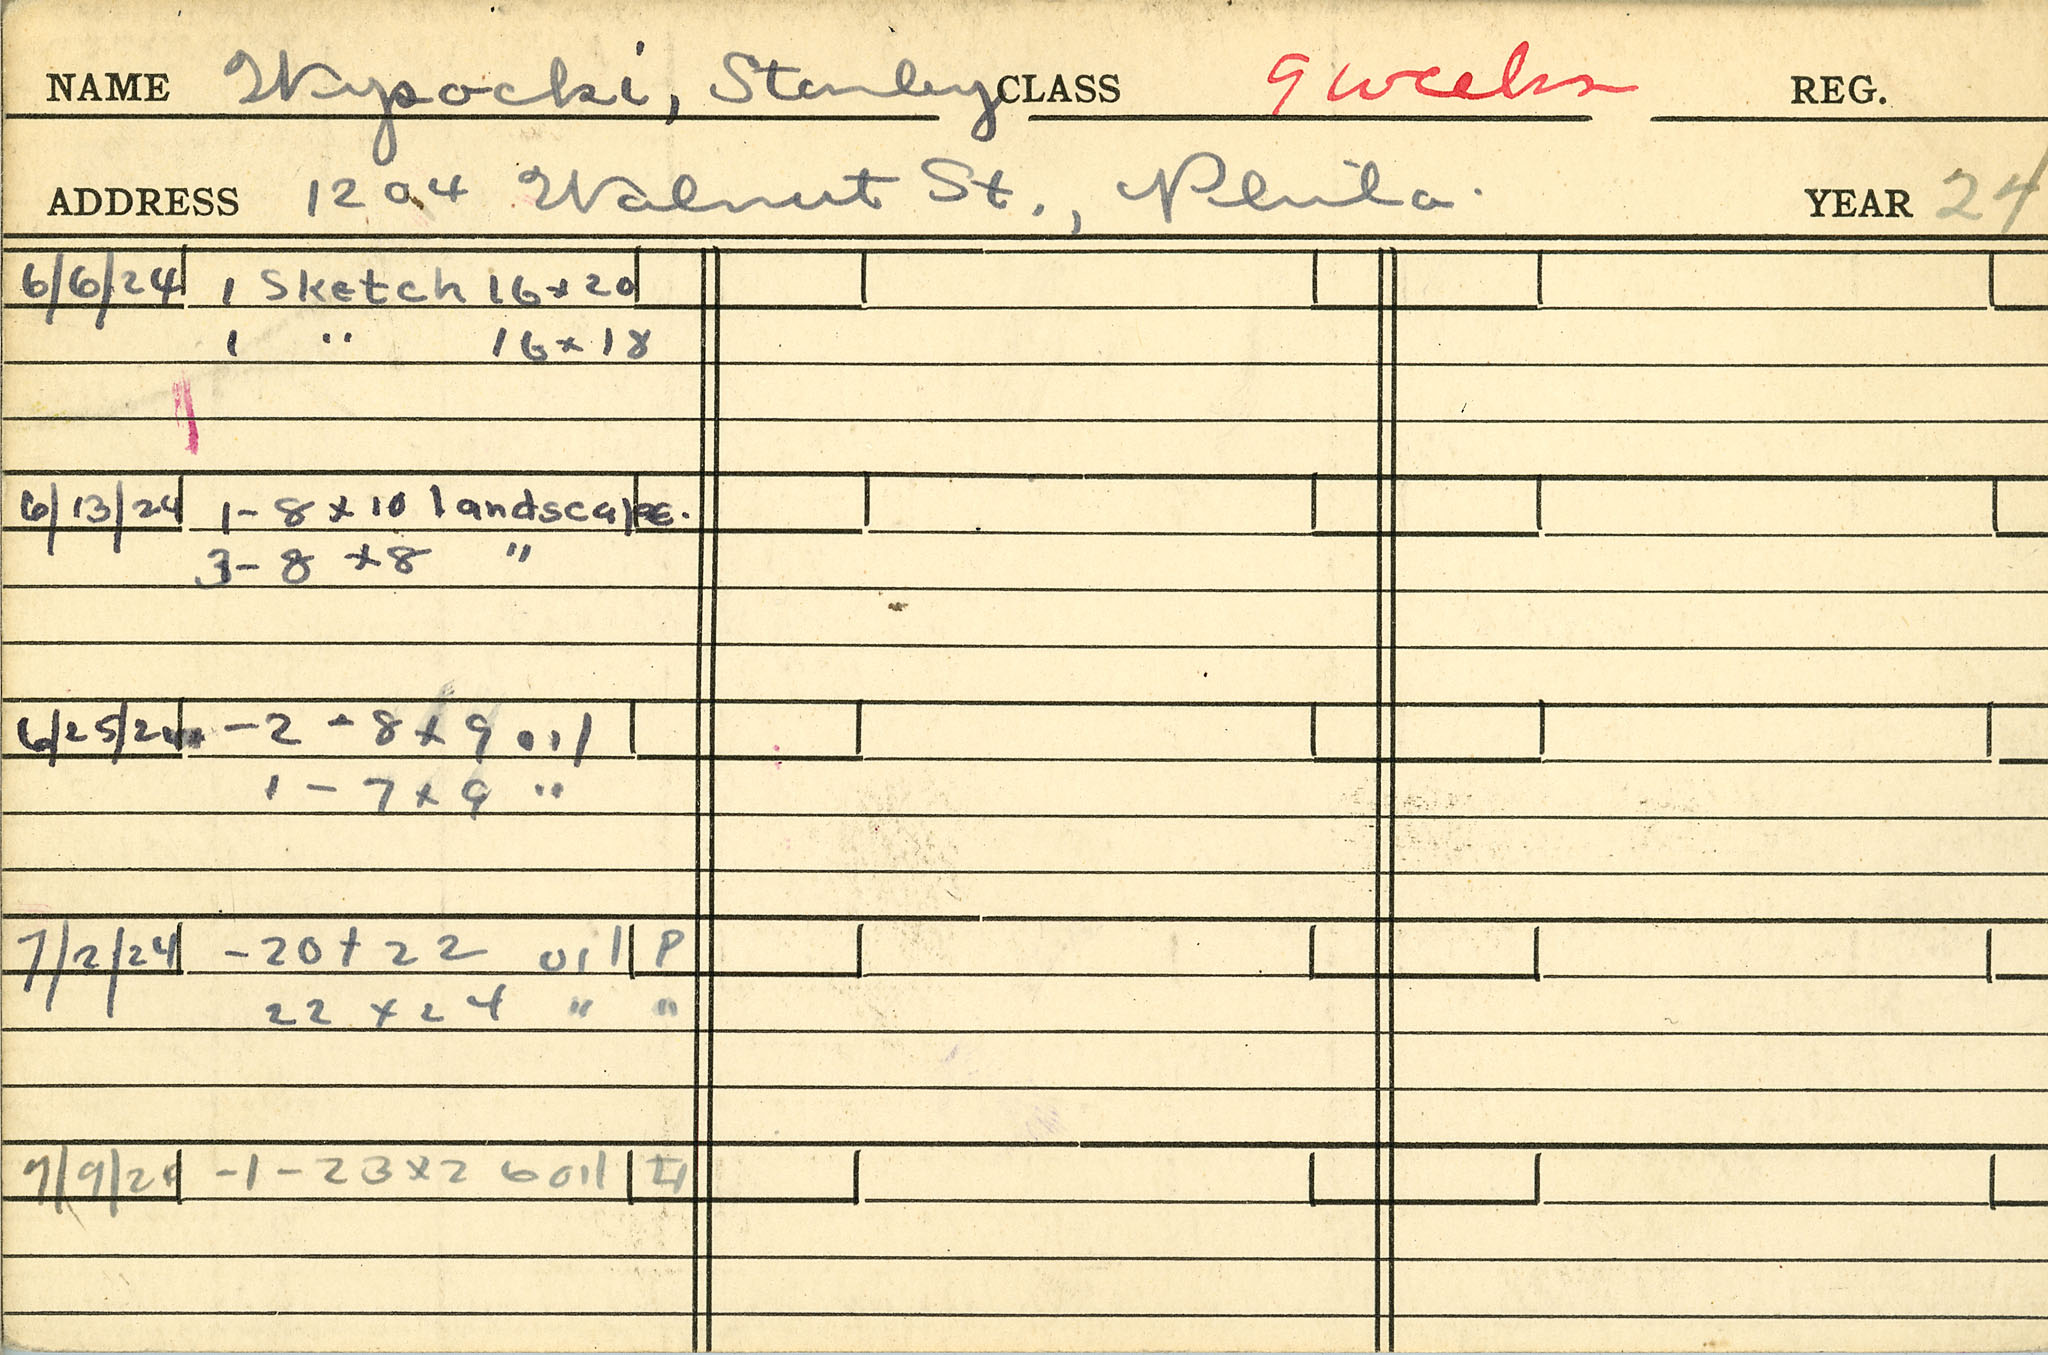 NAME Wysocki, Stanley CLASS 9 weeks REG.
ADDRESS 1204 Walnut St., Phila. YEAR 24
6/6/24 1 Sketch 16x20
1 " 16x18
6/13/24 1-8x10 landscape.
3-8x8 "
6/25/24 -2-8x9 oil
1-7x9 "
7/2/24 -20x22 oil P
22x24 " "
7/9/24 -1-23x26 oil